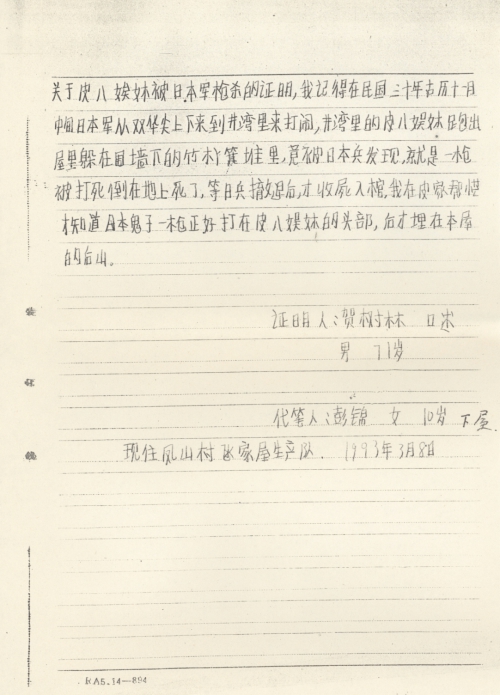 关于皮八娭妹被日本军枪杀的证明,我记得在民国三十年古历十月
中间日本军从双华尖上下来到井湾里来打闹,井湾里的皮八娭妹
屋里躲在围墙下的竹 堆里,竟被日本兵发现,就是一枪
被打死倒在地上死了,等日兵撤退后,才收屍入棺,我在皮家帮忙
才知道日本鬼子一枪正好打在皮八娭妹的头部,后才埋在本屋
的后山。
证明人:贺树林 口述
男 71岁
代笔人:彭锦 女 10岁 下屋.
现住凤山村 家屋生产队. 1993年3月8日
装
订
线
KA5.14—894